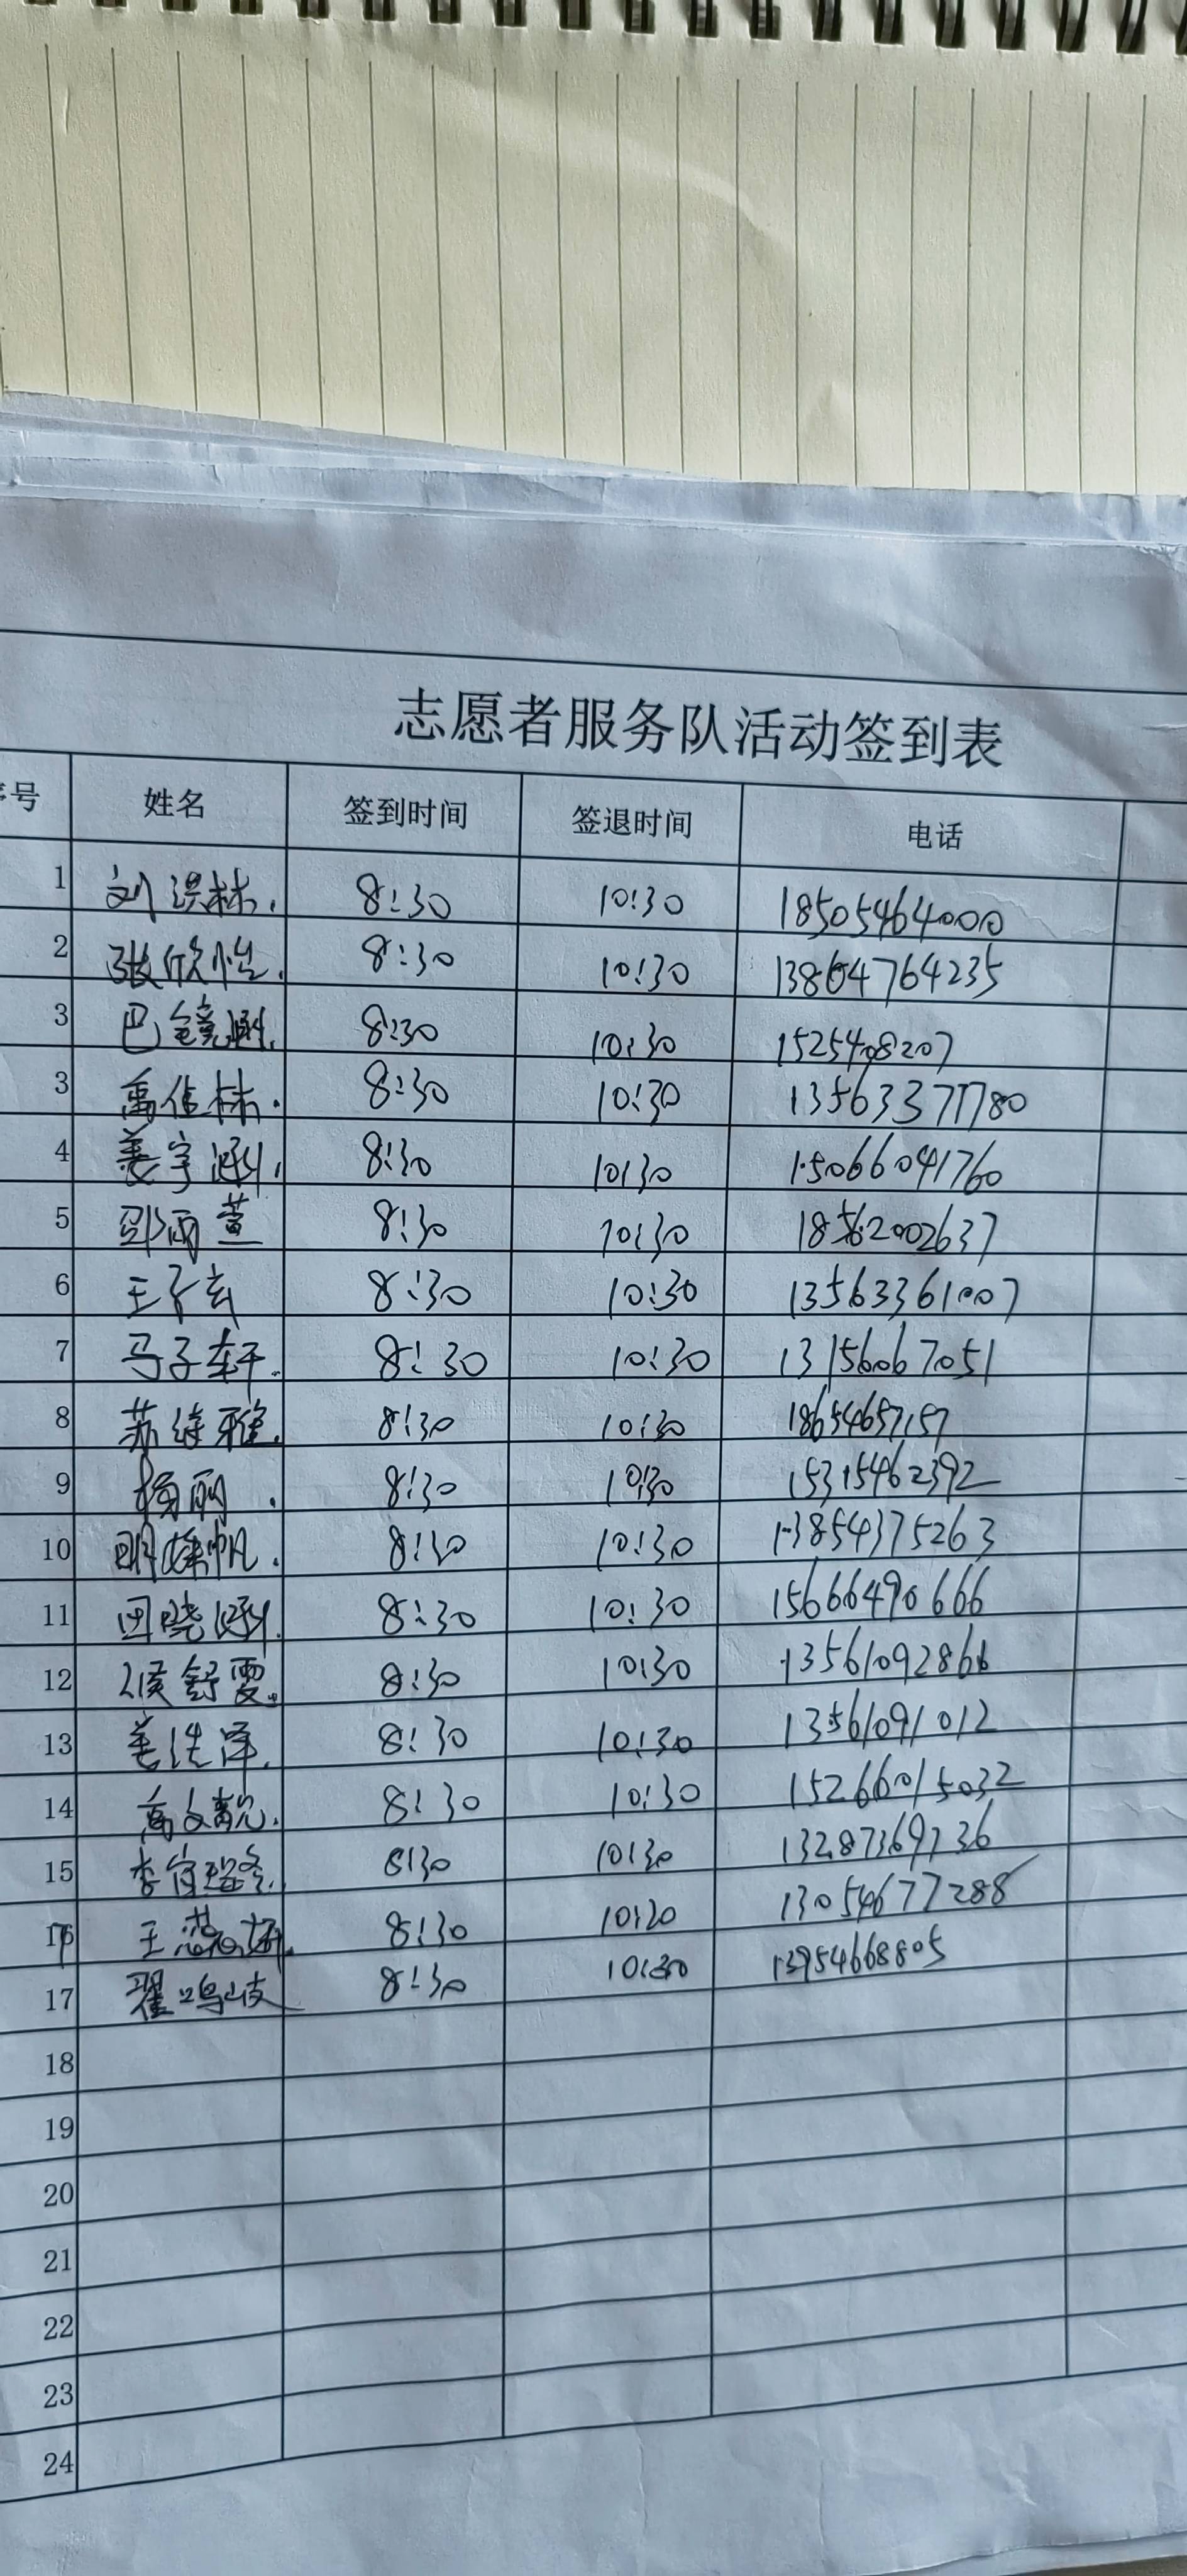 志愿者服务队活动签到表
号 姓名 签到时间 签退时间 电话
1 刘洪林. 8:30 10:30 18505464000
2 张欣怡. 8:30 10:30 13864764235
3 巴 8:30 10:30
3 禹佳林. 8:30 10:30 13563371780
4 姜宇涵. 8:30 10:30 15066041760
5 邵雨萱 8:30 10:30 18562002637
6 王子玄 8:30 10:30 13563361007
7 马子轩. 8:30 10:30 13156067051
8 苏诗雅. 8:30 10:30 18654657157
9 杨丽. 8:30 10:30 15315462392
10 8:30 10:30 13854375263
11 田晓涵. 8:30 10:30 15666490666
12 侯舒雯. 8:30 10:30 13561092866
13 姜洪泽. 8:30 10:30 13561091012
14 高文靓. 8:30 10:30 15266015032
15 李 8:30 10:30 13287369736
16 王 8:30 10:20 13054677288
17 翟鸣岐 8:30 10:30 13954668805
18
19
20
21
22
23
24